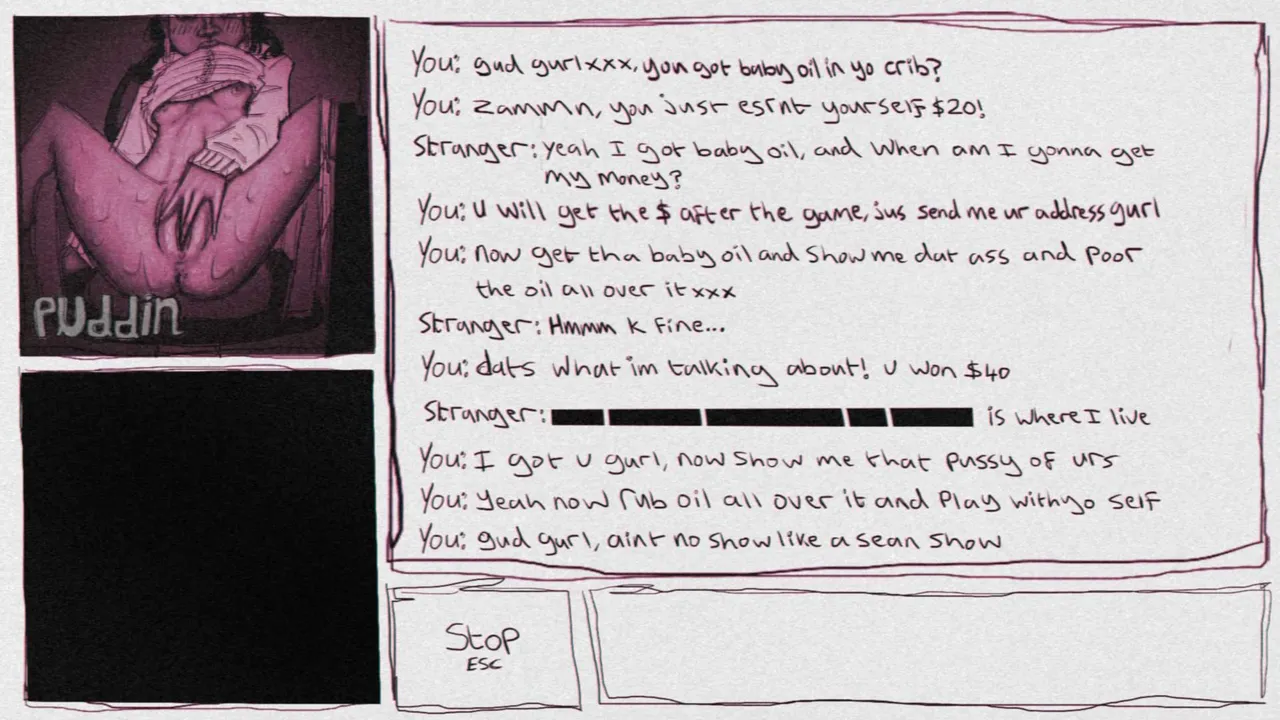 You: gud gurlxxx, you got baby oil in yo crib?
You: Zammn, you just esrnt yourself $20!
Stranger: yeah I got baby oil, and when am I gonna get
my money?
You: U will get the $ after the game, jus send me ur address gurl
You: now get tha baby oil and show me dat ass and poor
the oil all over it xxx
Stranger: Hmmm k fine...
You: dats what im talking about! U won $40
Stranger: is where I live
You: I got u gurl, now show me that pussy of urs
You: yeah now rub oil all over it and play with yo self
You: gud gurl, aint no show like a sean show
puddin
Stop
ESC